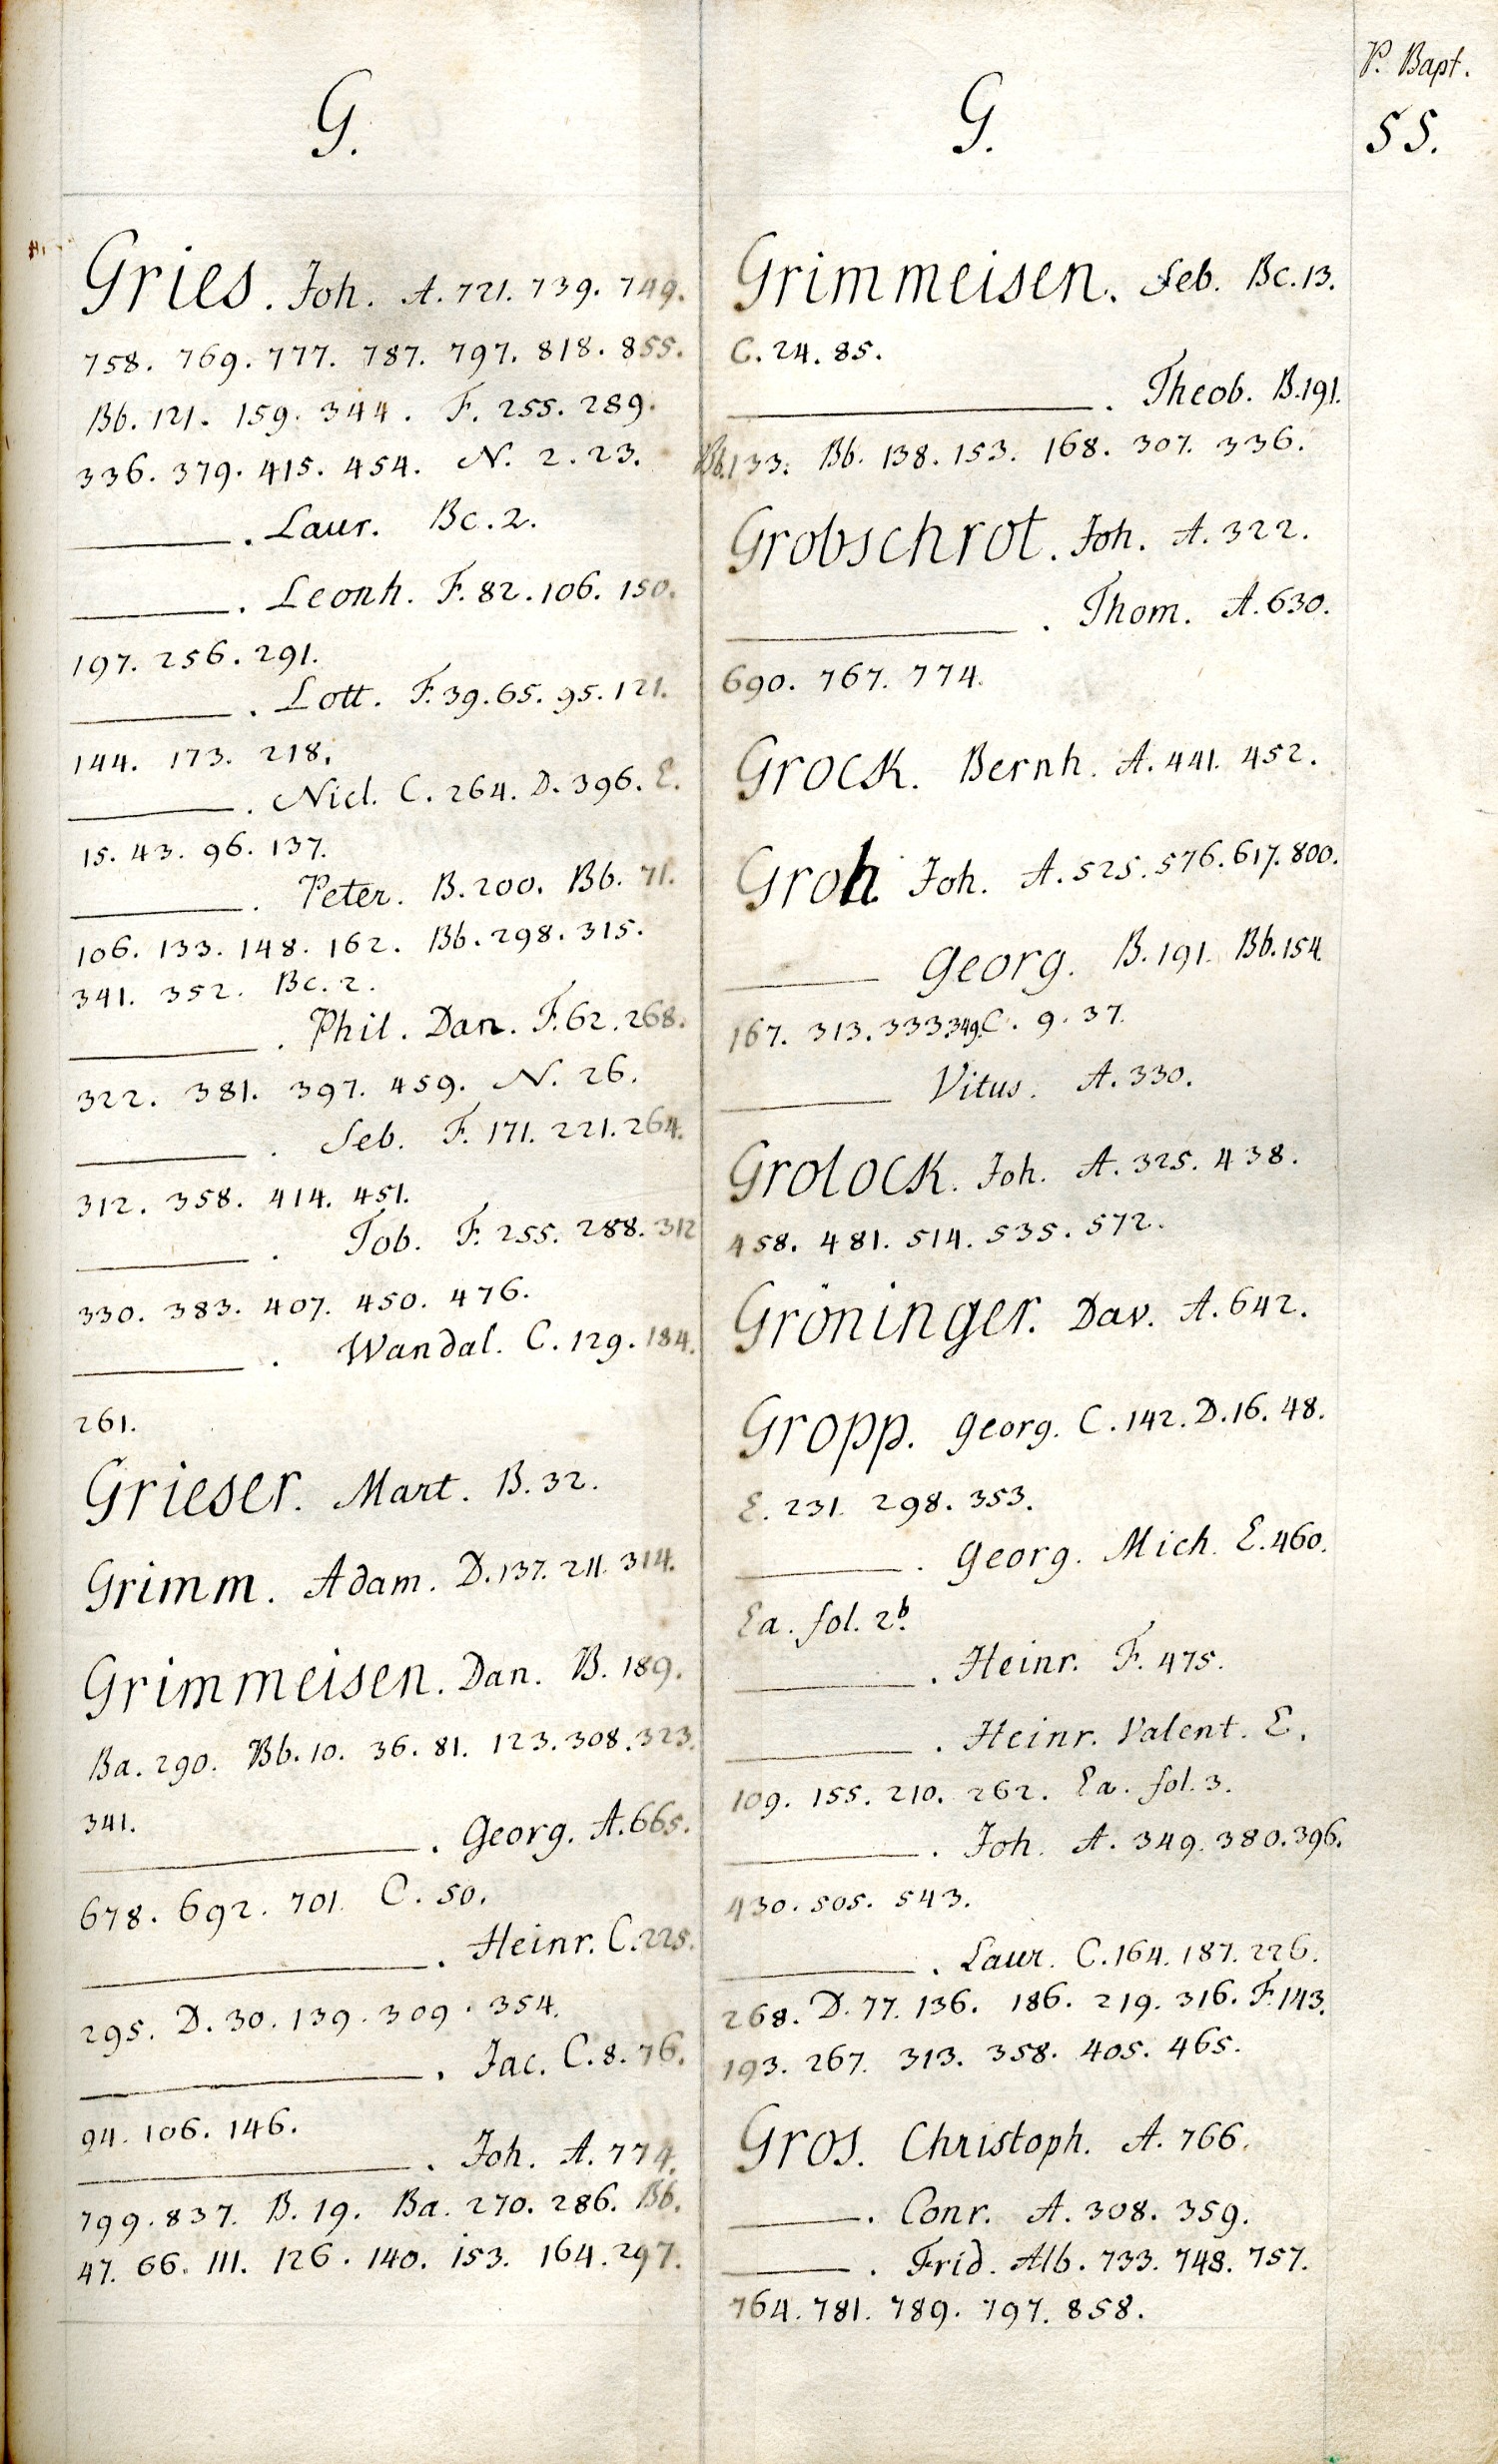 P. Bapt.
55.
G.
Gries. Joh. A. 721. 739. 749.
758. 769. 777. 787. 797. 818. 855.
Bb. 121. 159. 344. F. 255. 289.
336. 379. 415. 454. N. 2. 23.
———. Laur. Bc. 2.
———. Leonh. F. 82. 106. 150.
197. 256. 291.
———. Lott. F. 39. 65. 95. 121.
144. 173. 218.
———. Nicl. C. 264. D. 396. E.
15. 43. 96. 137.
———. Peter. B. 200. Bb. 71.
106. 133. 148. 162. Bb. 298. 315.
341. 352. Bc. 2.
———. Phil. Dan. F. 62. 268.
322. 381. 397. 459. N. 26.
———. Seb. F. 171. 221. 264.
312. 358. 414. 451.
———. Tob. F. 255. 288. 312
330. 383. 407. 450. 476.
———. Wandal. C. 129. 184.
261.
Grieser. Mart. B. 32.
Grimm. Adam. D. 137. 211. 314.
Grimmeisen. Dan. B. 189.
Ba. 290. Bb. 10. 36. 81. 123. 308. 323.
341.
———. Georg. A. 665.
678. 692. 701. C. 50.
———. Heinr. C. 225.
295. D. 30. 139. 309. 354.
———. Jac. C. 8. 76.
94. 106. 146.
———. Joh. A. 774.
799. 837. B. 19. Ba. 270. 286. Bb.
47. 66. 111. 126. 140. 153. 164. 297.
G.
Grimmeisen. Seb. Bc. 13.
C. 24. 85.
———. Theob. B. 191.
Bb. 133. Bb. 138. 153. 168. 307. 336.
Grobschrot. Joh. A. 322.
———. Thom. A. 630.
690. 767. 774.
Grock. Bernh. A. 441. 452.
Groh Joh. A. 525. 576. 617. 800.
——— Georg. B. 191. Bb. 154.
167. 313. 333. 349. C. 9. 37.
——— Vitus. A. 330.
Grolock. Joh. A. 325. 438.
458. 481. 514. 535. 572.
Gröninger. Dav. A. 642.
Gropp. Georg. C. 142. D. 16. 48.
E. 231. 298. 353.
———. Georg. Mich. E. 460.
Ea. fol. 2b.
———. Heinr. F. 475.
———. Heinr. Valent. E.
109. 155. 210. 262. Ea. fol. 3.
———. Joh. A. 349. 380. 396.
430. 505. 543.
———. Laur. C. 164. 187. 226.
268. D. 77. 136. 186. 219. 316. F. 143.
193. 267. 313. 358. 405. 465.
Gros. Christoph. A. 766.
———. Conr. A. 308. 359.
———. Frid. Alb. 733. 748. 757.
764. 781. 789. 797. 858.